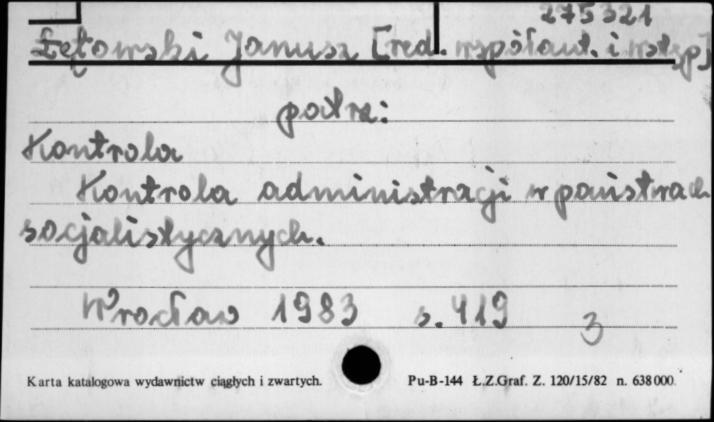 275321
Łętowski Janusz [red. współaut. i wstęp]
patrz:
Kontrola
Kontrola administracji w państwach
socjalistycznych.
Wrocław 1983 s. 419 3
Karta katalogowa wydawnictw ciągłych i zwartych. Pu-B-144 Ł.Z.Graf. Z. 120/15/82 n. 638000.